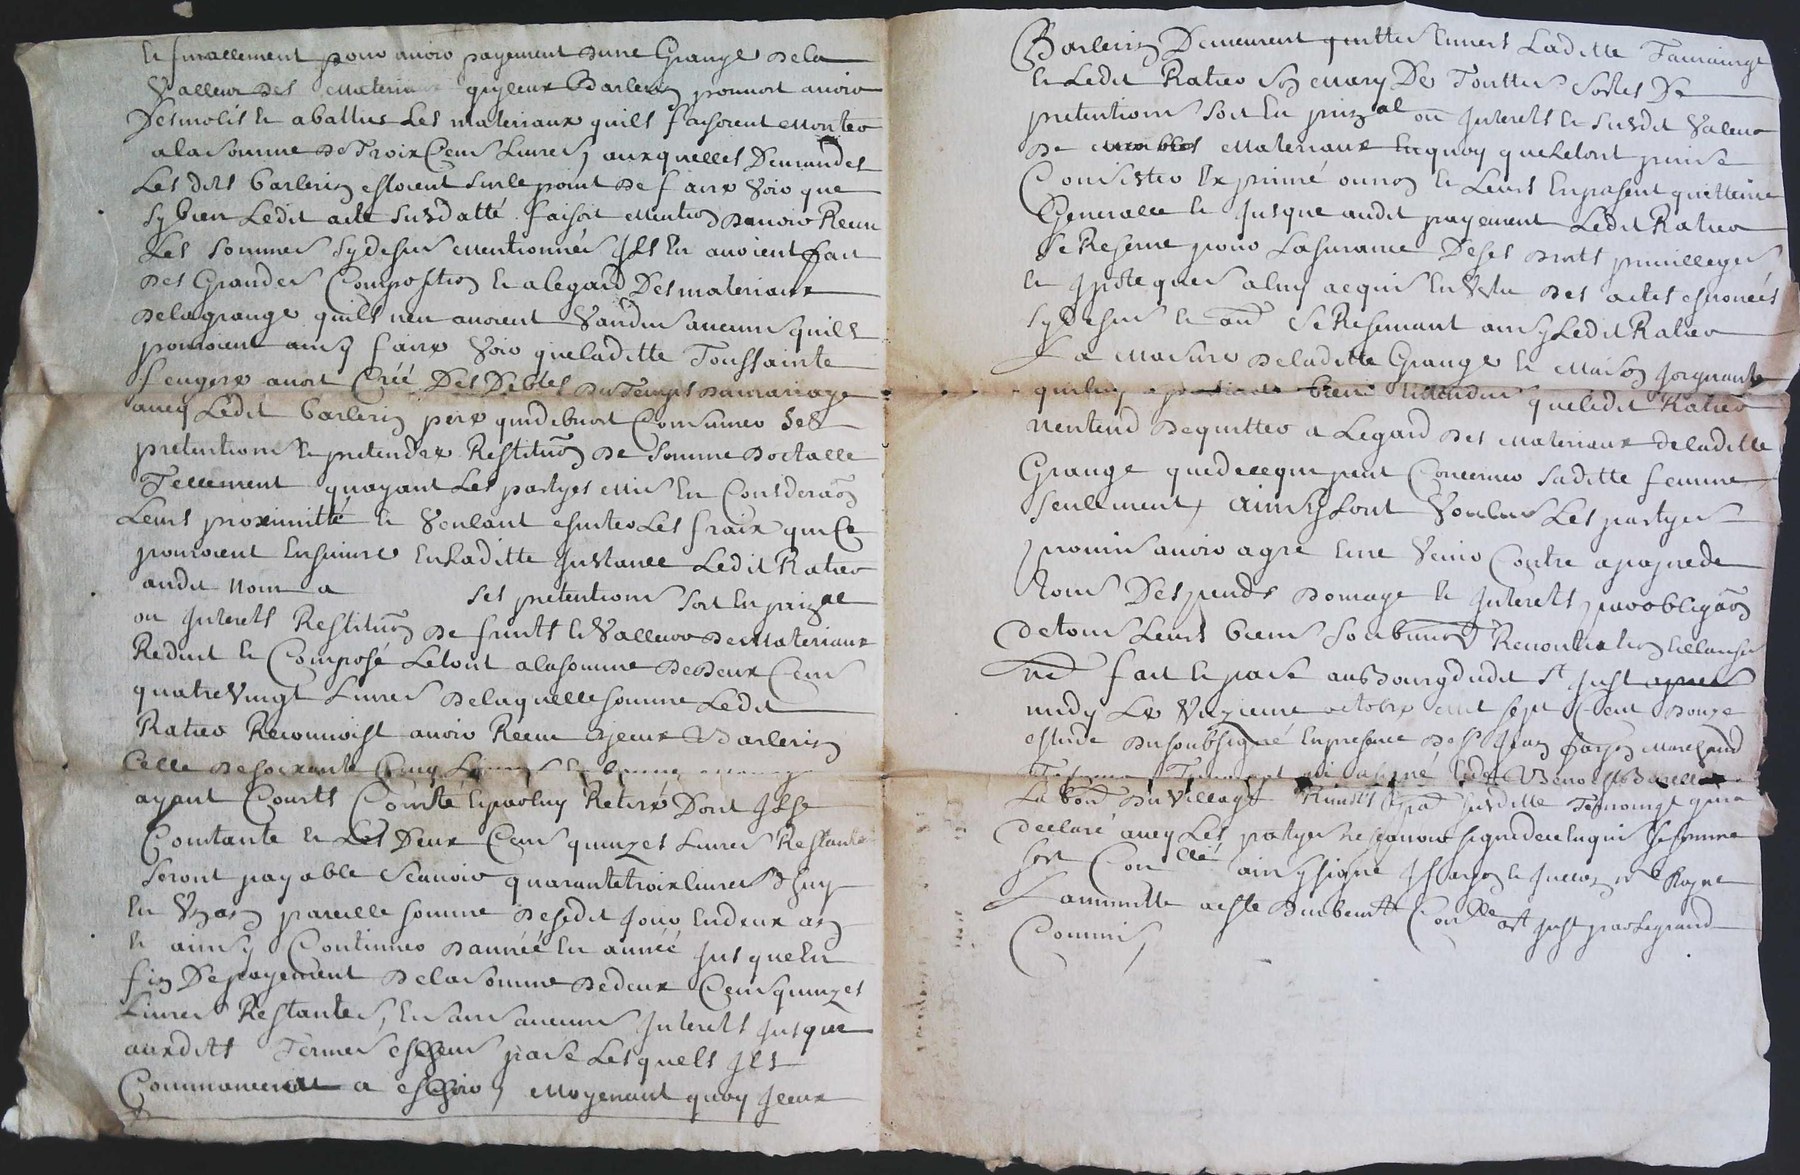 et finallement pour avoir payement dune Grange dela
Valleur des materiaux qu yceux Barlerin pouvoit avoir
Desmolis et abattus Les materiaux quils faisoient monter
ala somme de Trois Cens Livres, auxquelles Demandes
Les dits barlerin estoient sur le point de faire Voir que
sy bien Ledit acte susdatté faisoit mention davoir Receu
Les sommes sydesus mentionnées Ils en avoient fait
des Grandes Composition et alegard Des materiaux
dela grange quils nen avoient Vandus aucuns quils
pouvoient ainsy faire Voir que laditte Toussainte
feugere avoit Créé Des Debtes du Temps du mariage
avecq Ledit barlerin pere qui debvoit Consumer Ses
pretentions et pretendue Restituōn de Somme doctalle
Tellement quayant Les partyes mis en Consideraōn
Leurs proximitté et Voulant esviter Les fraix qui Ce
pouroient Ensuivre En Laditte Instance Ledit Ratier
audit Nom a Ses pretentions soit en prizal
ou Interets Restituōn de fruits et Valleur de materiaux
Reduit et Composé Letout ala somme de Deux Cens
quatre Vingt Livres de laquelle somme Ledit
Ratier Reconnoist avoir Receu dyceux Barlerin
Celle de soixante Cinq Livres
ayant Courts Compté et par luy Retiré Dont Il se
Contante et Les Deux Cens quinzes Livres Restantes
seront payable Scavoir quarante trois livres dhuy
En Un an pareille somme de sedit jour En deux an
et ainsy Continuer dannée En année jusque En
fin De payement dela somme dedeux Cens quinzes
Livres Restantes, En sans aucuns Interets jusque
auxdits Termes escheus passé Lesquels Ils
Commanceront a eschoir, Moyenant quoy yceux
Barlerin Demeurent quittes Envers Laditte
et Ledit Ratier son mary De Touttes Sortes De
pretentions soit En prizal ou Interets et susdit Valeur
de materiaux En quoy que Letout puisse
Consister Exprimé ou non et Leurs En passent quittence
Generalle et jusque audit payement Ledit Ratier
se Reserve pour Lasurance De ses droits privilleges
et Ipoteques a luy acquis En Vertu des actes esnoncés
sydesus et Se Reservant ainsy Ledit Ratier
La Masure de laditte Grange et Maison joignante
bien Entendu que ledit Ratier
nentend de quitter a Legard des materiaux de laditte
Grange que de ce qui peut Concerner saditte femme
seulement, ainsy Lont Voulus Les partyes
promis avoir agré sans Venir Contre a payne de
tous Despends domage et Interets par obligaōn
de tous Leurs biens soubmis Renontiation et clauses
fait et passé au Bourg dudit St Just apres
midy Le Unzieme octobre mil sept Cent douze
estude du soubsigné En presence de sr Jean Marchand
Benoist
La bour du Village susdite Temoings qui a
declaré avecq Les partyes ne scavoir signer de ce Enquis
ainsy signé
La minutte
Commis,